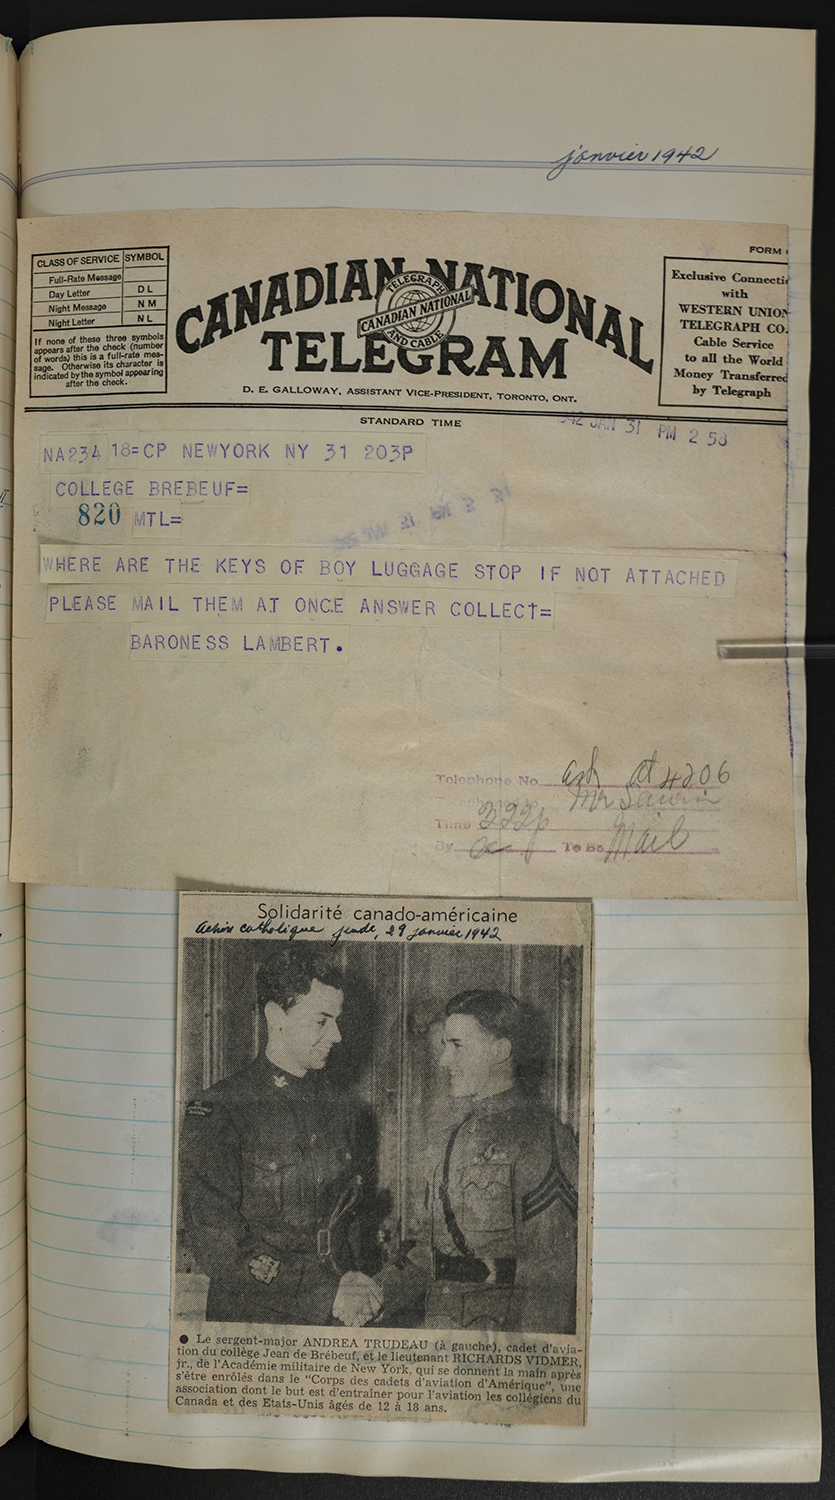 janvier 1942
FORM
CLASS OF SERVICE SYMBOL
Full-Rate Message
Day Letter D L
Night Message N M
Night Letter N L
If none of these three symbols
appears after the check (number
of words) this is a full-rate mes-
sage. Otherwise its character is
indicated by the symbol appearing
after the check.
CANADIAN NATIONAL
TELEGRAM
TELEGRAPH
CANADIAN NATIONAL
AND CABLE
D. E. GALLOWAY, ASSISTANT VICE-PRESIDENT, TORONTO, ONT.
Exclusive Connecti
with
WESTERN UNION
TELEGRAPH CO.
Cable Service
to all the World
Money Transferred
by Telegraph
STANDARD TIME
42 JAN 31 PM 2 58
NA234 18=CP NEWYORK NY 31 203P
COLLEGE BREBEUF=
820 MTL=
WHERE ARE THE KEYS OF BOY LUGGAGE STOP IF NOT ATTACHED
PLEASE MAIL THEM AT ONCE ANSWER COLLECT=
BARONESS LAMBERT.
Telephone No. At 4206
Mr
Time 322p
By To Be Mail
Solidarité canado-américaine
Action catholique jeudi, 29 janvier 1942
● Le sergent-major ANDREA TRUDEAU (à gauche), cadet d'avia-
tion du collège Jean de Brébeuf, et le lieutenant RICHARDS VIDMER,
jr., de l'Académie militaire de New York, qui se donnent la main après
s'être enrôlés dans le "Corps des cadets d'aviation d'Amérique", une
association dont le but est d'entraîner pour l'aviation les collégiens du
Canada et des Etats-Unis âgés de 12 à 18 ans.